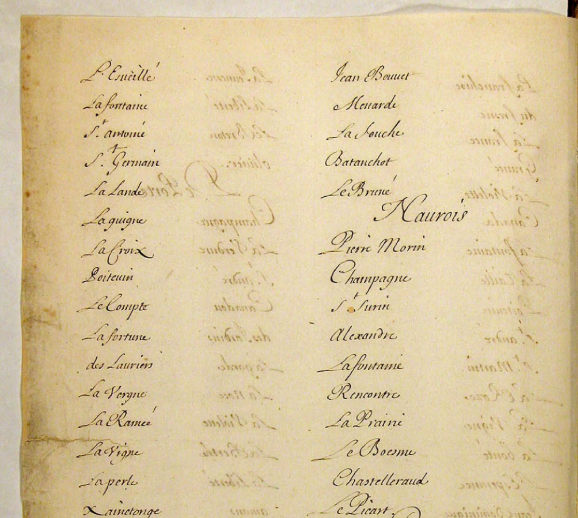 L'Esueillé
La fontaine
St. antoine
St. Germain
La Lande
La guigne
La Croix
Poiteuin
Le Compte
La fortune
des Lauriers
La Vergne
La Ramée
La Vigne
La perle
Xaintonge
Jean Bouuet
Menarde
La Fouche
Batanchot
Le Bruné
Naurois
Pierre Morin
Champagne
St. Surin
Alexandre
Lafontaine
Rencontre
La Prairie
Le Boesme
Chastelleraud
Le Picart